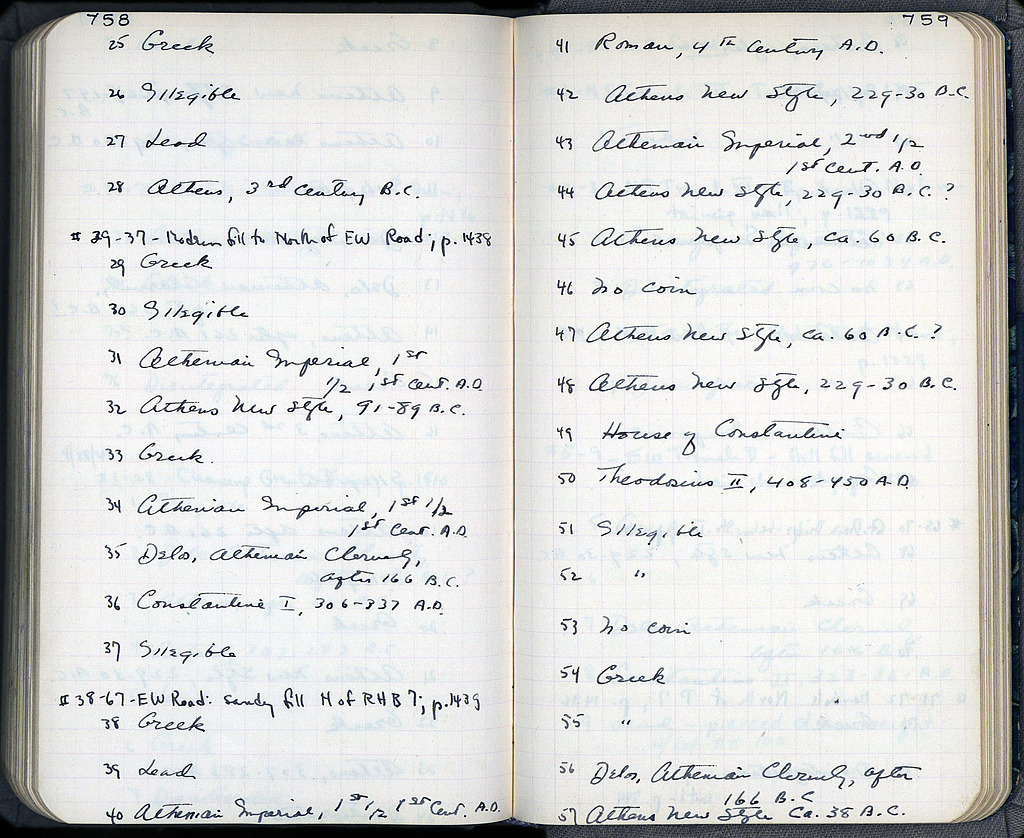 758
25 Greek
26 Illegible
27 Lead
28 Athens, 3rd century B.C.
# 29-37 - Modern fill to North of EW Road; p. 1438
29 Greek
30 Illegible
31 Athenian Imperial, 1st
1/2 1st Cent. A.D.
32 Athens New Style, 91-89 B.C.
33 Greek.
34 Athenian Imperial, 1st 1/2
1st Cent. A.D.
35 Delos, Athenian Cleruchy,
after 166 B.C.
36 Constantine I, 306-337 A.D.
37 Illegible
# 38-67 - EW Road: sandy fill N of RHB 7; p. 1439
38 Greek
39 Lead
40 Athenian Imperial, 1st 1/2 1st Cent. A.D.
759
41 Roman, 4th Century A.D.
42 Athens New Style, 229-30 B.C.
43 Athenian Imperial, 2nd 1/2
1st Cent. A.D.
44 Athens New Style, 229-30 B.C.?
45 Athens New Style, ca. 60 B.C.
46 No coin
47 Athens New Style, ca. 60 B.C.?
48 Athens New Style, 229-30 B.C.
49 House of Constantine
50 Theodosius II, 408-450 A.D.
51 Illegible
52 "
53 No coin
54 Greek
55 "
56 Delos, Athenian Cleruchy, after
166 B.C
57 Athens New Style Ca. 38 B.C.